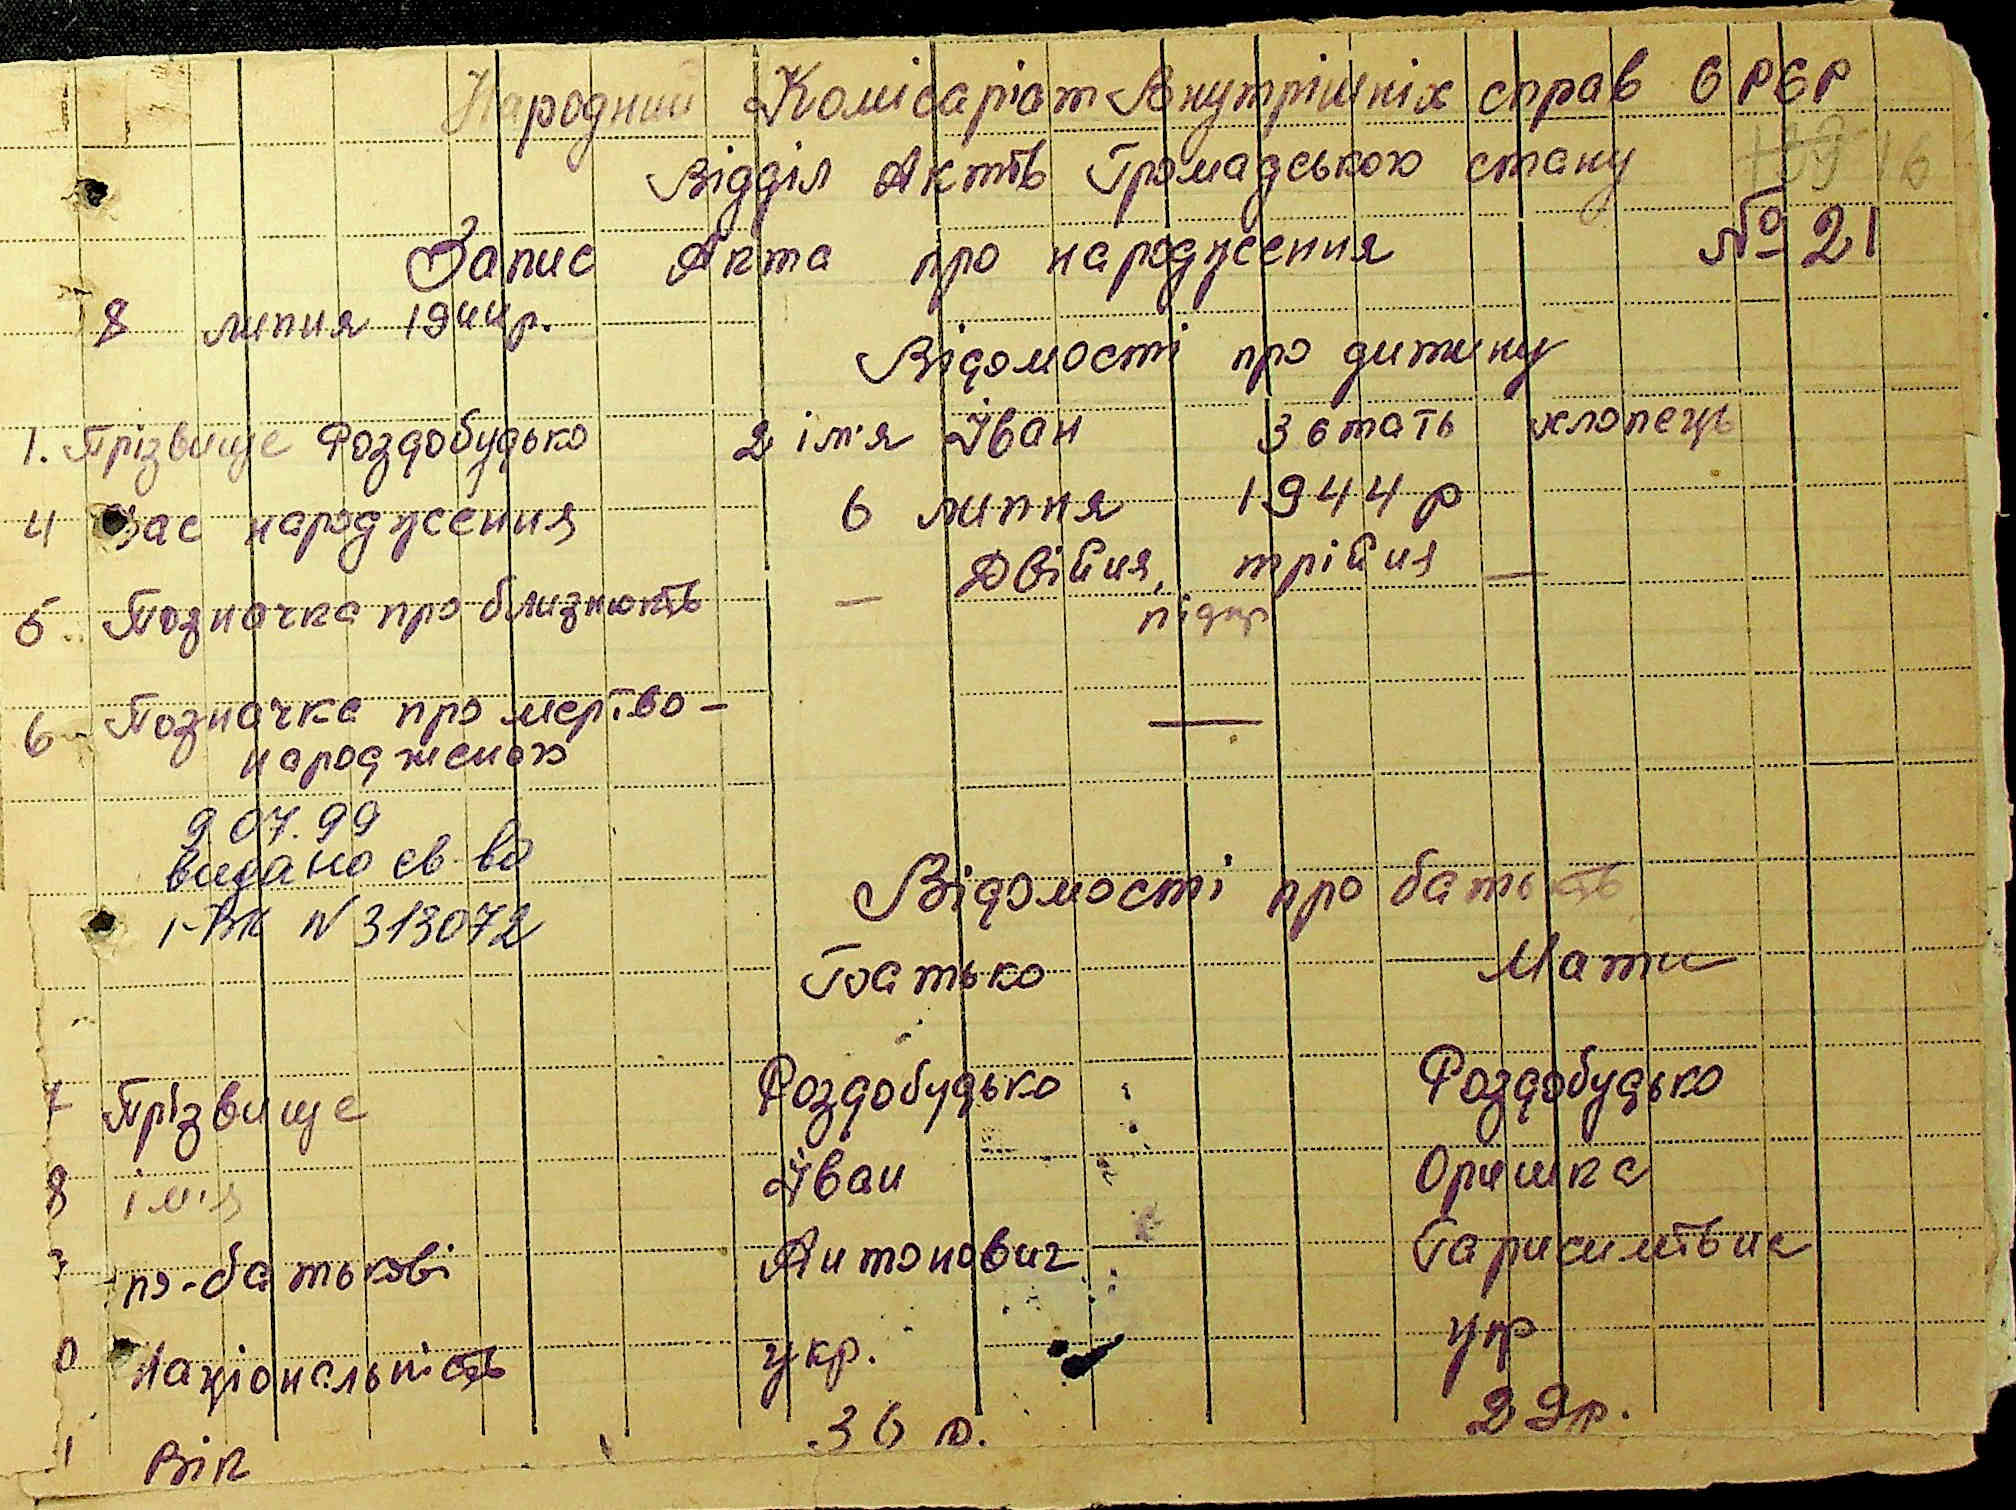 Народний Комісаріат Внутрішніх справ СРСР
Відділ Актів Громадського стану
16
Запис Акта про народження № 21
8 липня 1944р.
Відомості про дитину
1. Прізвище Роздобудько 2 ім'я Іван 3 стать хлопець
4 Час народження 6 липня 1944 р
Двійня, трійня —
5 Позначка про близнюків — підкр
6 Позначка про мертво-
народженого —
9 07.99
видано св-во
I-ВК N 313072
Відомості про батьків
Батько Мати
7 Прізвище Роздобудько Роздобудько
8 ім'я Іван Оришка
по-батькові Антонович Гарисимівна
0 Національність укр. укр
1 Вік 36 р. 29р.